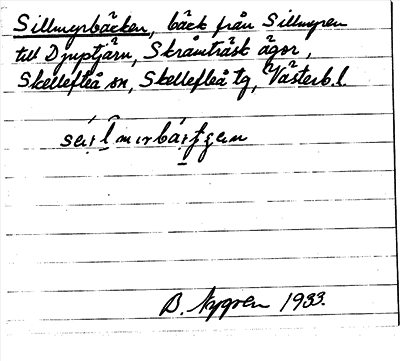 Sillmyrbäcken, bäck från Sillmyren
till Djuptjärn, Skråmträsk ägor,
Skellefteå sn, Skellefteå tg, Västerb. l.
B. Nygren 1933.